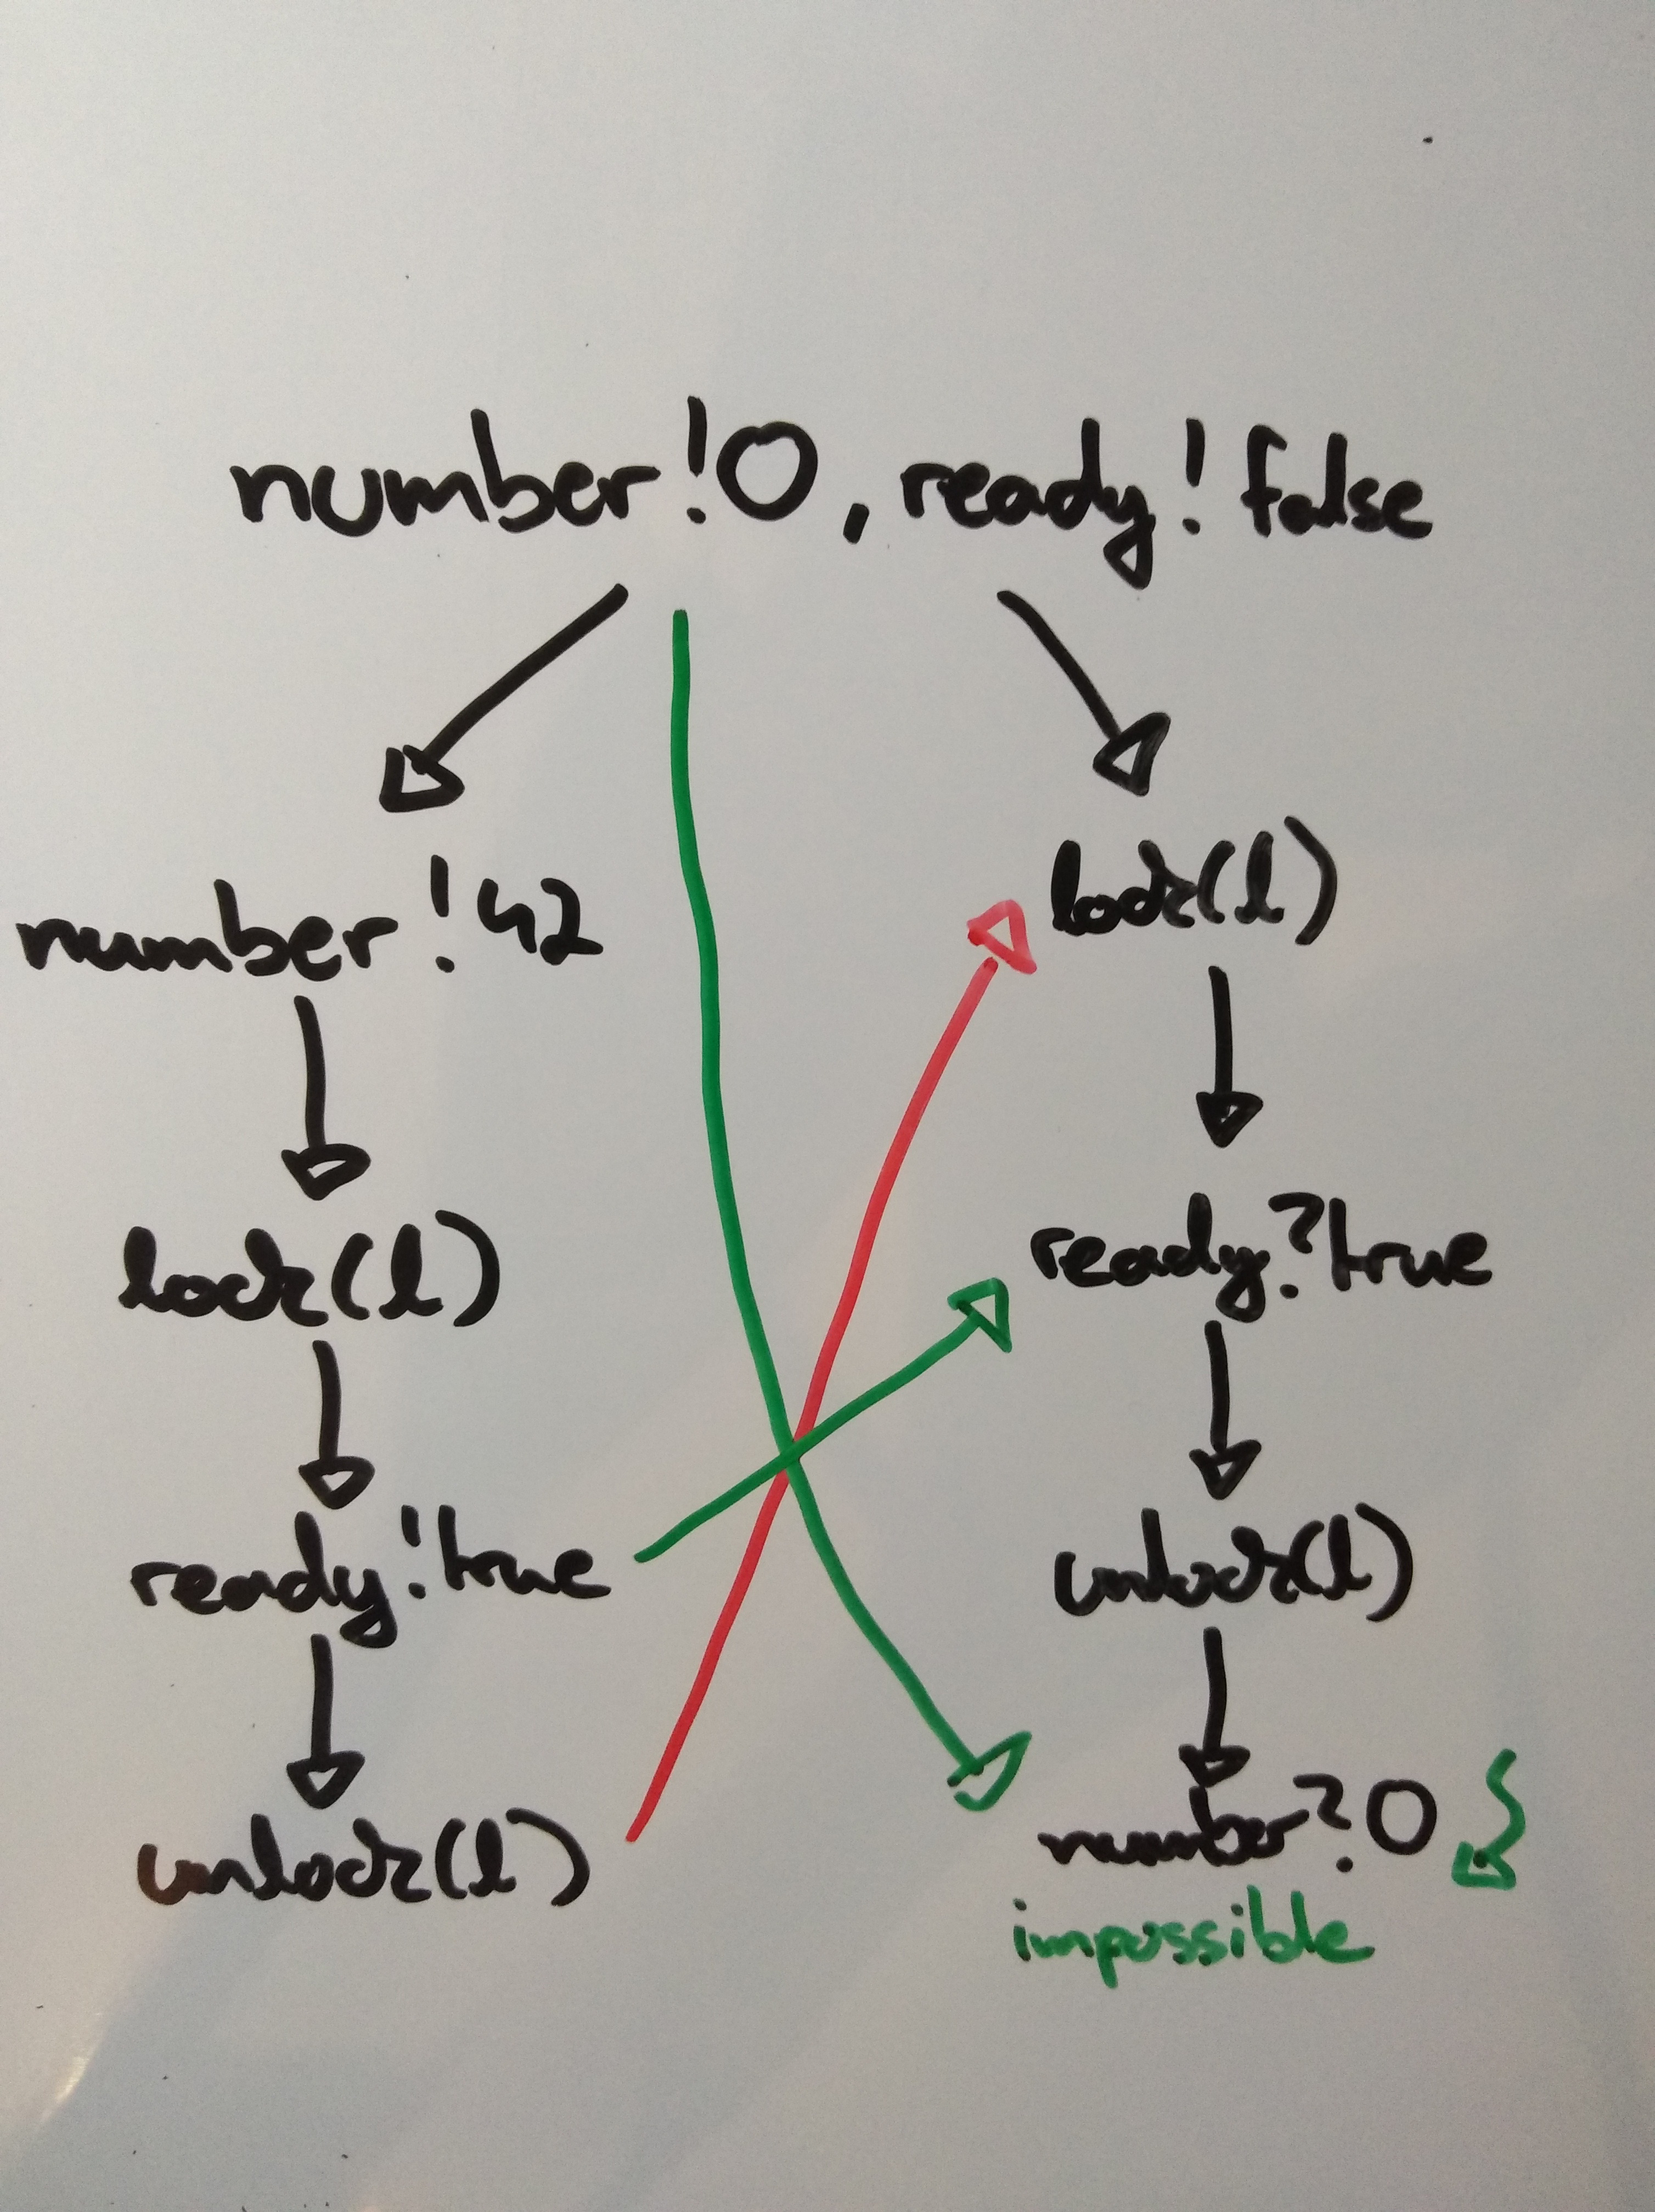 number!0, ready!false
number!42
lock(l)
ready!true
unlock(l)
lock(l)
ready?true
unlock(l)
number?0
impossible